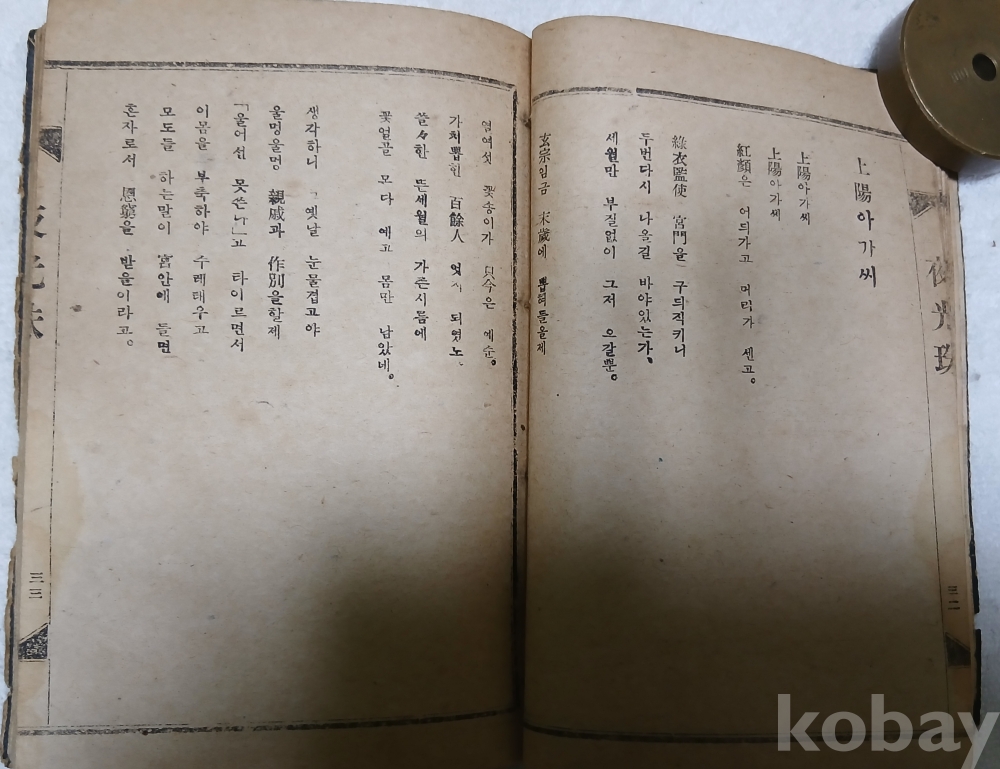 夜光珠
上陽아가씨
上陽아가씨
上陽아가씨
紅顔은 어듸가고 머리가 센고。
綠衣監使 宮門을 구듸직키니
두번다시 나올길 바야있는가、
세월만 부질없이 그저 으갈뿐。
玄宗임금 末歲에 뽑혀들을제
三二
열여섯 꽃송이가 只今은 예순。
가치뽑힌 百餘人 엇지 되엿노、
쓸々한 뜬세월의 가즌시름에
꽃얼골 모다 예고 몸만 남았네。
생각하니 「옛날 눈물겹고야
울멍울멍 親戚과 作別을할제
「울어선 못쓴다」고 타이르면서
이몸을 부축하야 수레태우고
모도들 하는말이 宮안에 들면
혼자로서 恩寵을 받을이라고。
夜光珠
三三
kobay